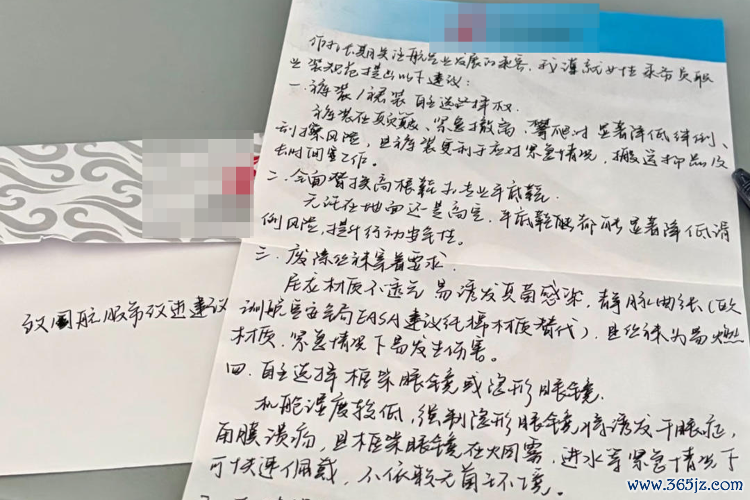 作为长期关注航空业发展的乘客,我谨就女性乘务员职
业装规范提出以下建议:
一.裤装/裙装自主选择权.
裤装在颠簸、紧急撤离、攀爬时显著降低绊倒、
刮擦风险,且裤装更利于应对紧急情况,搬运物品及
长时间工作。
二.全面替换高根鞋为专业平底鞋.
无论在地面还是高空,平底鞋都能显著降低滑
倒风险,提升行动安全性。
三.废除丝袜穿着要求.
尼龙材质不透气易诱发真菌感染,静脉曲张(欧
洲航空安全局EASA建议纯棉材质替代),且丝袜为易燃
材质,紧急情况下易发生伤害。
四.自主选择框架眼镜或隐形眼镜.
机舱湿度较低,强制隐形眼镜将诱发干眼症,
角膜溃疡,且框架眼镜在火烟雾,进水等紧急情况下
可快速佩戴,不依赖无菌环境。
致国航服务改进建议
www.365jz.com